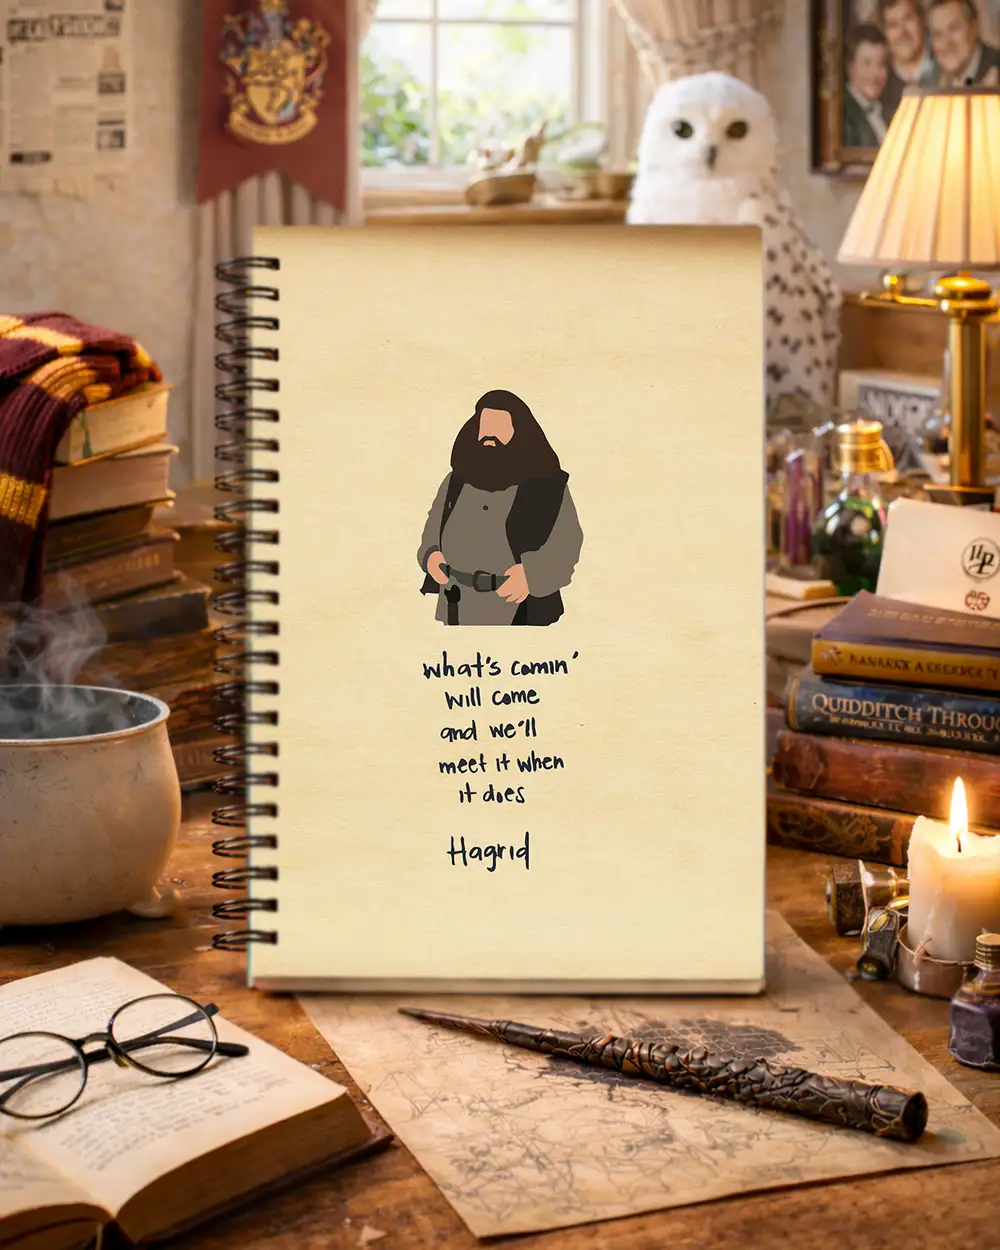 what's comin'
will come
and we'll
meet it when
it does
Hagrid
QUIDDITCH THROU